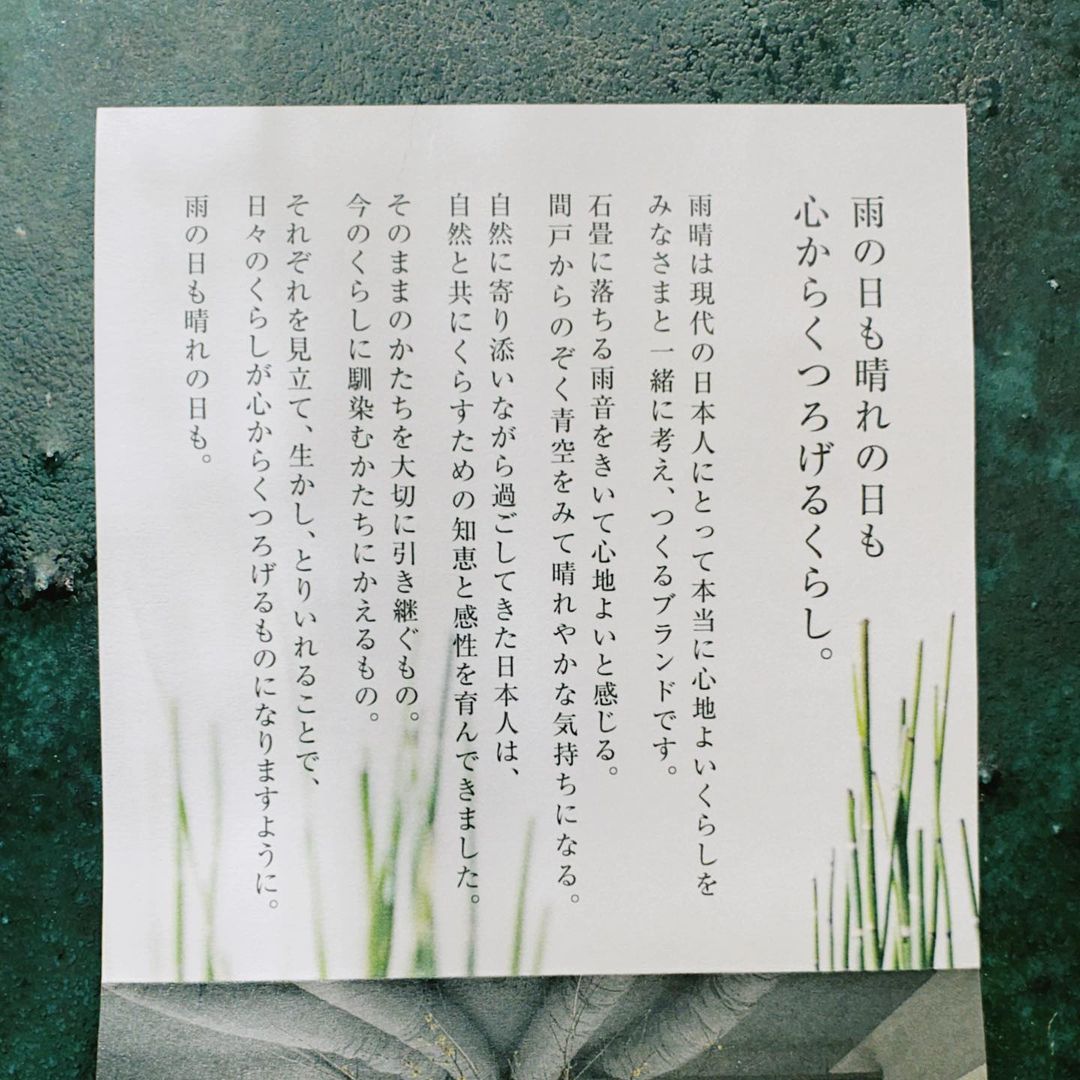 雨の日も晴れの日も
心からくつろげるくらし。
雨晴は現代の日本人にとって本当に心地よいくらしを
みなさまと一緒に考え、つくるブランドです。
石畳に落ちる雨音をきいて心地よいと感じる。
間戸からのぞく青空をみて晴れやかな気持ちになる。
自然に寄り添いながら過ごしてきた日本人は、
自然と共にくらすための知恵と感性を育んできました。
そのままのかたちを大切に引き継ぐもの。
今のくらしに馴染むかたちにかえるもの。
それぞれを見立て、生かし、とりいれることで、
日々のくらしが心からくつろげるものになりますように。
雨の日も晴れの日も。